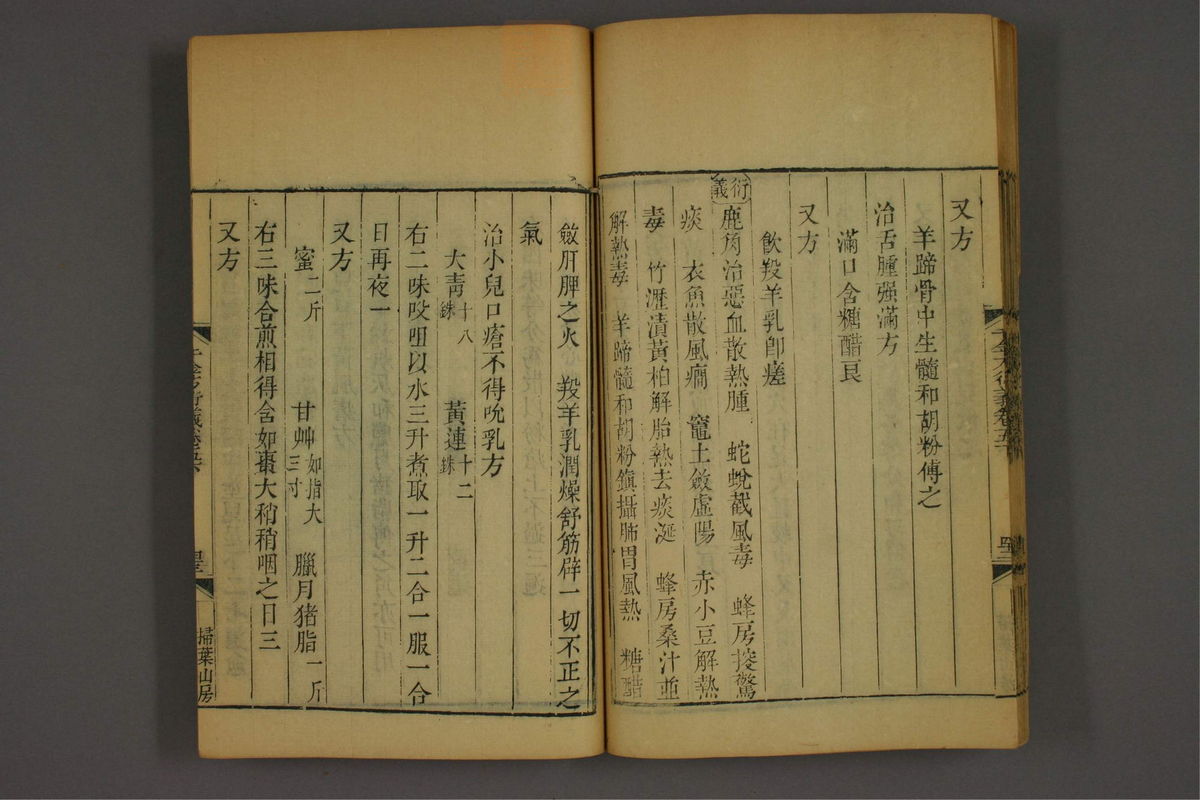 又方
羊蹄骨中生髓和胡粉傅之
治舌腫强滿方
滿口含糖醋良
又方
飲羖羊乳卽瘥
衍義
鹿角治惡血散熱腫 蛇蛻截風毒 蜂房掞驚
痰 衣魚散風癎 竈土斂虛陽 赤小豆解熱
毒 竹瀝漬黃柏解胎熱去痰涎 蜂房桑汁並
解熱毒 羊蹄髓和胡粉鎭攝肺胃風熱 糖醋
斂肝脾之火 羖羊乳潤燥舒筋辟一切不正之
氣
治小兒口瘡不得吮乳方
大靑十八銖 黃連十二銖
右二味㕮咀以水三升煮取一升二合一服一合
日再夜一
又方
蜜二斤 甘艸如指大三寸 臘月猪脂一斤
右三味合煎相得含如棗大稍稍咽之日三
又方
掃葉山房